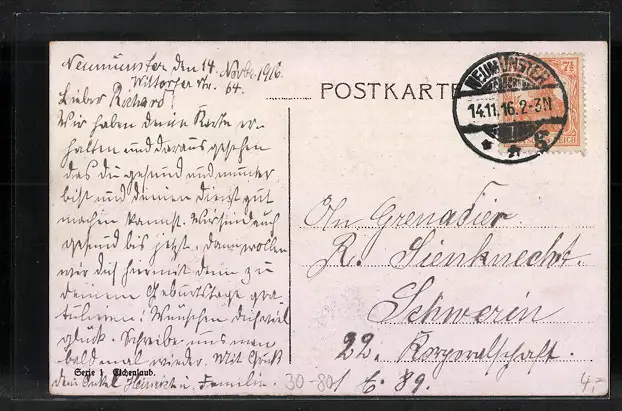 Neumünster den 14. Novbr. 1916.
Wittorfer Str. 64.
Lieber Richard!
Wir haben deine Karte er-
halten und daraus gesehen
das du gesund und munter
bist und deinen Dienst gut
machen kannst. Wir sind auch
gesund bis jetzt, dann wollen
wir dich hiermit denn zu
deinem Geburtstage gra-
tulieren! Wünschen dich viel
glück. Schreibe uns man
bald mal wieder. Mit Gruß
dein Onkel Heinrich u. Familie.
Serie 1 Eichenlaub.
POSTKARTE
NEUMÜNSTER
14.11.16. 2-3N
* 5
7½
REICH
An Grenadier
R. Sienknecht.
Schwerin
22. Korporalschaft.
30-80/ 89.
4.-